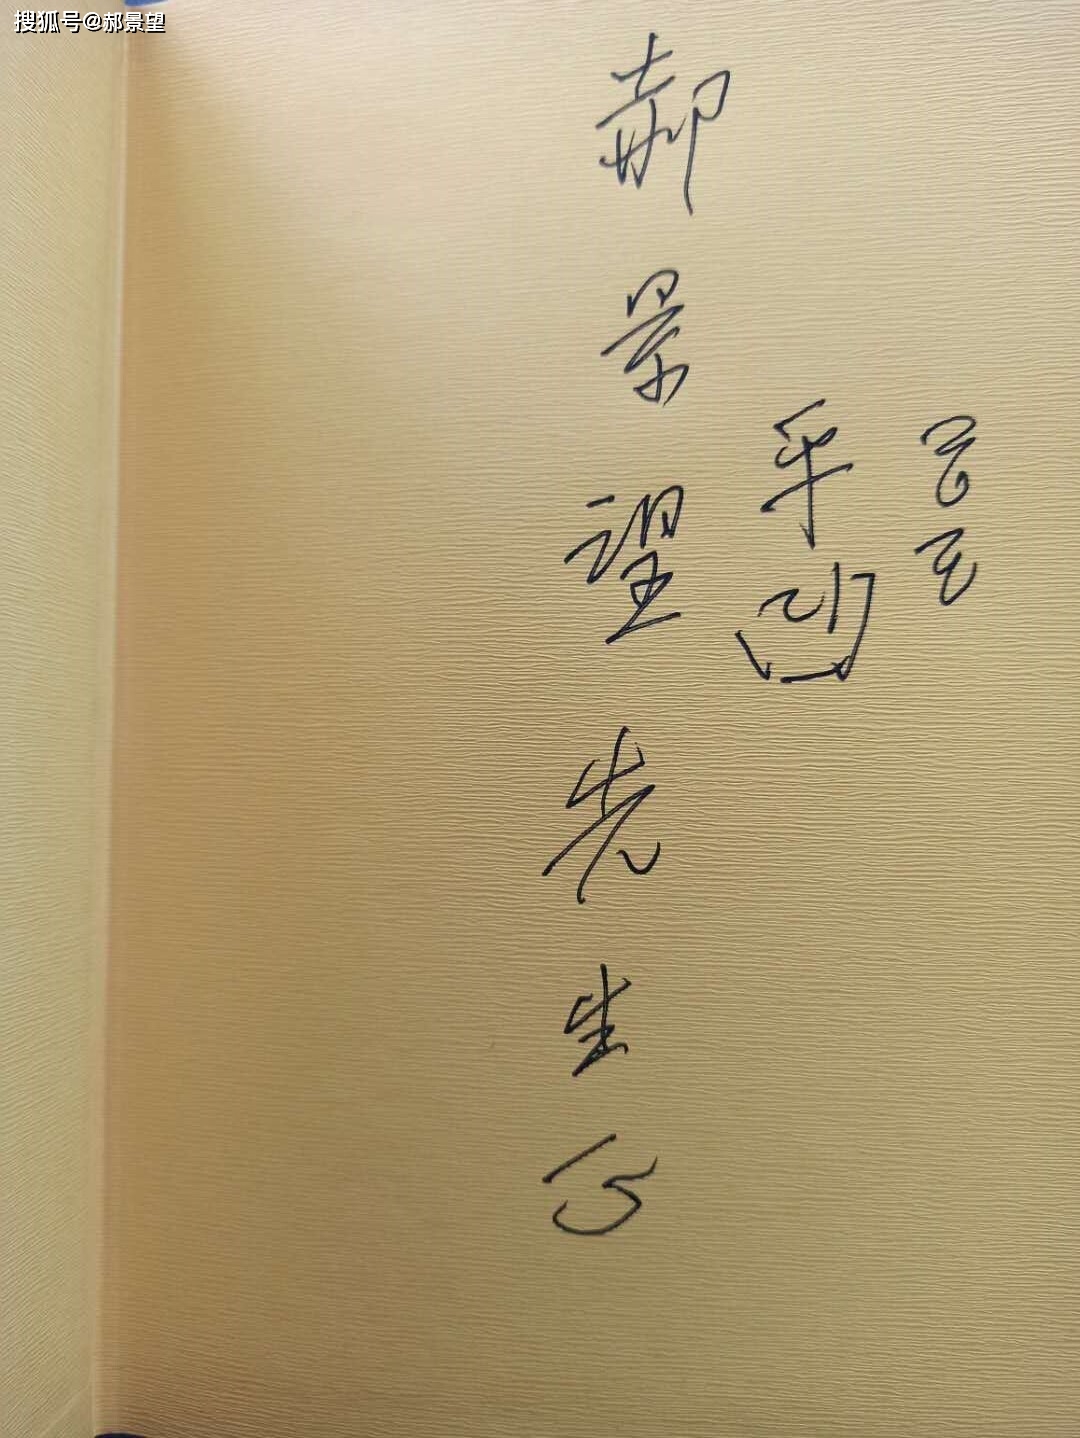 搜狐号@郝景望
郝景望先生
平凹